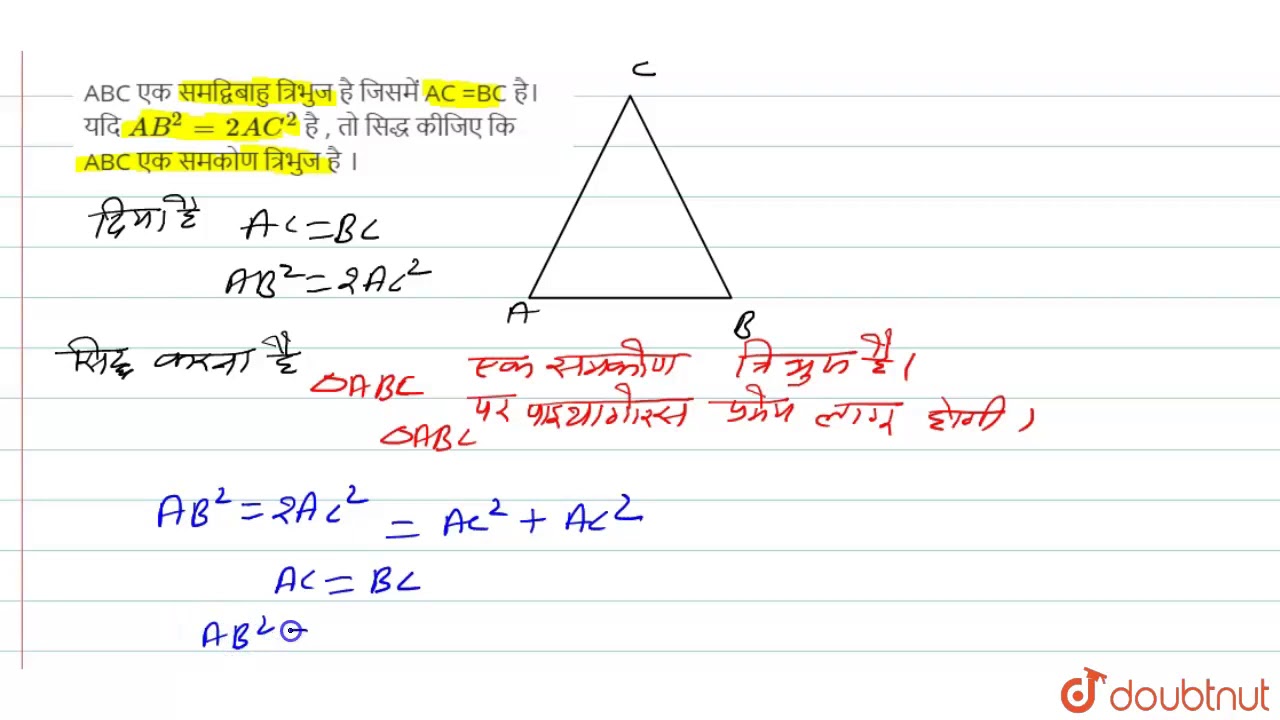 ABC एक समद्विबाहु त्रिभुज है जिसमें AC =BC है।
यदि AB² = 2AC² है , तो सिद्ध कीजिए कि
ABC एक समकोण त्रिभुज है ।
C
दिया है AC = BC
AB² = 2AC²
A
B
सिद्ध करना है △ABC एक समकोण त्रिभुज है।
△ABC पर पाइथागोरस प्रमेय लागू होगी।
AB² = 2AC² = AC² + AC²
AC = BC
AB² =
doubtnut